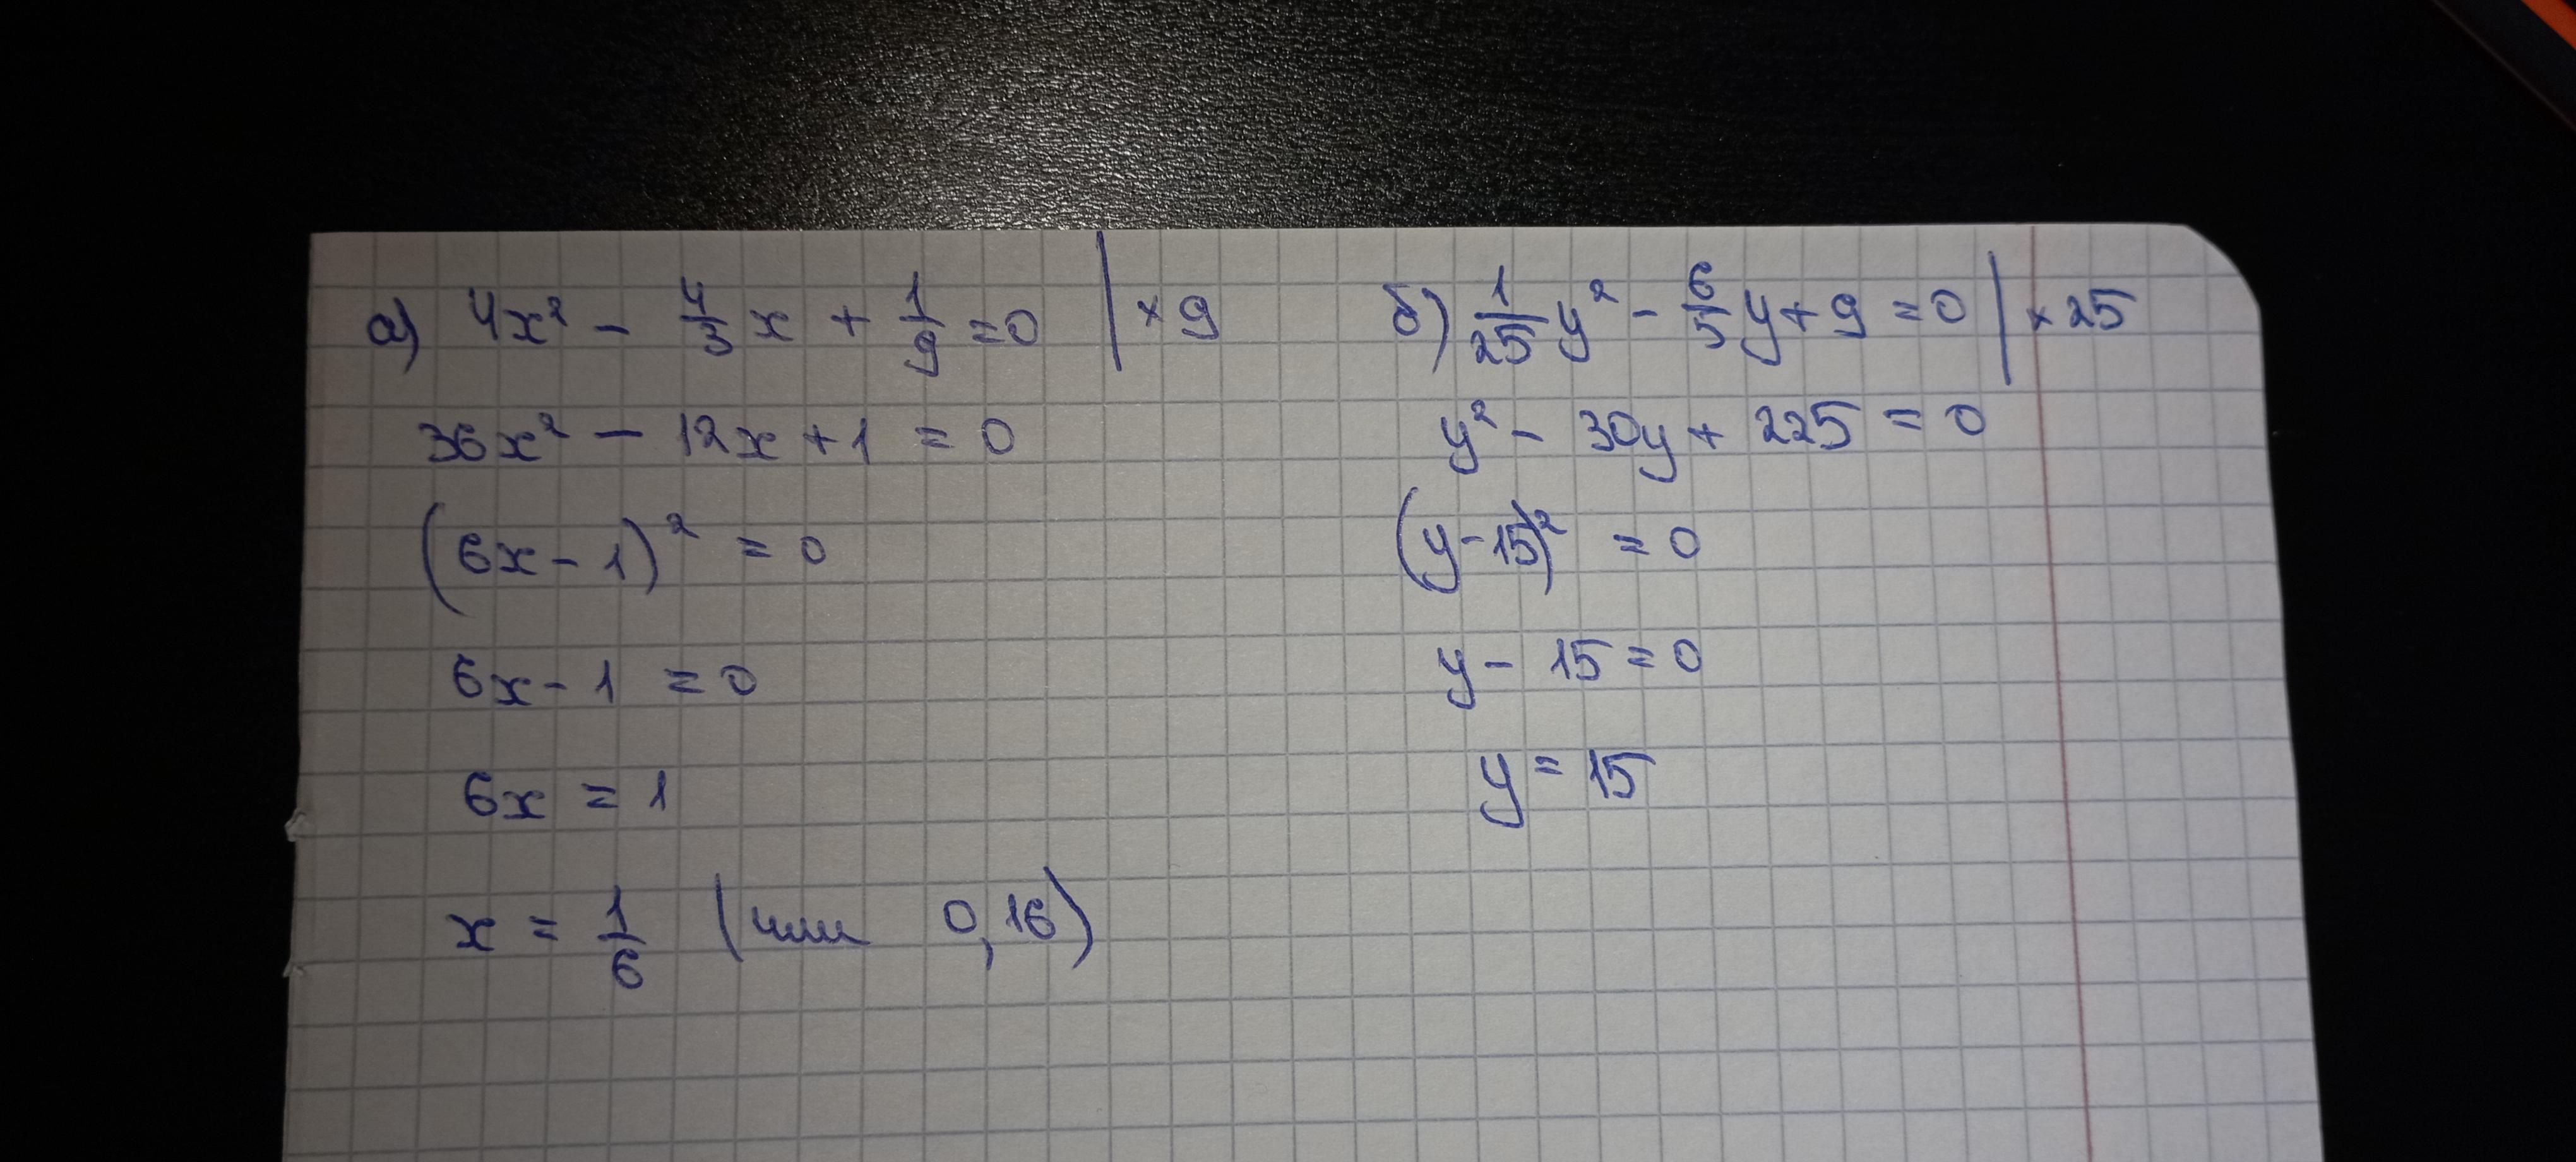 а) 4x² - 4/3 x + 1/9 = 0 | × 9
36x² - 12x + 1 = 0
(6x - 1)² = 0
6x - 1 = 0
6x = 1
x = 1/6 (или 0,16)
б) 1/25 y² - 6/5 y + 9 = 0 | × 25
y² - 30y + 225 = 0
(y - 15)² = 0
y - 15 = 0
y = 15